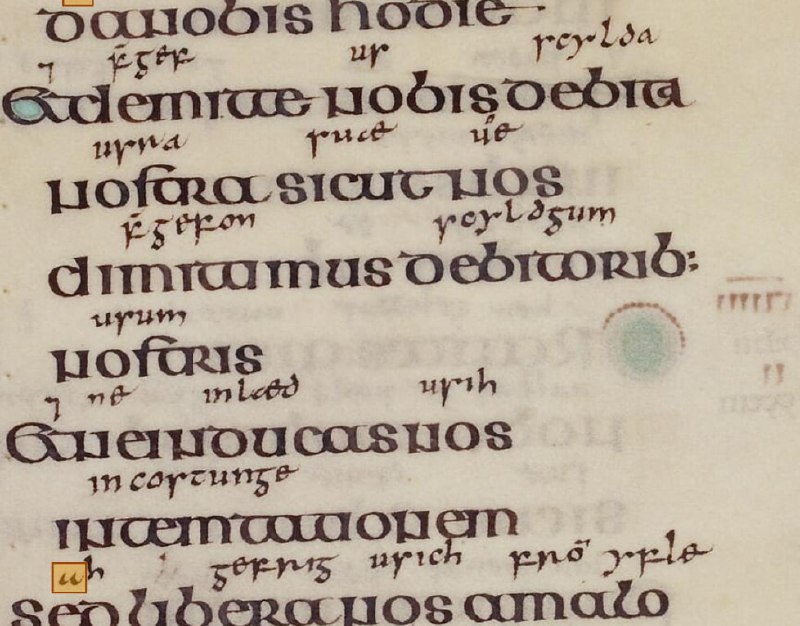 da nobis hodie
⁊ f̄gef us scylda
Et demitte nobis debita
usra suæ uͦe
nostra sicut nos
f̄gefon scyldgum
dimittimus debitorib:
usum
nostris
⁊ ne inlæd usih
Et ne inducas nos
in costunge
in temtationem
ah gefrig usich frō yfle
sed libera nos a malo